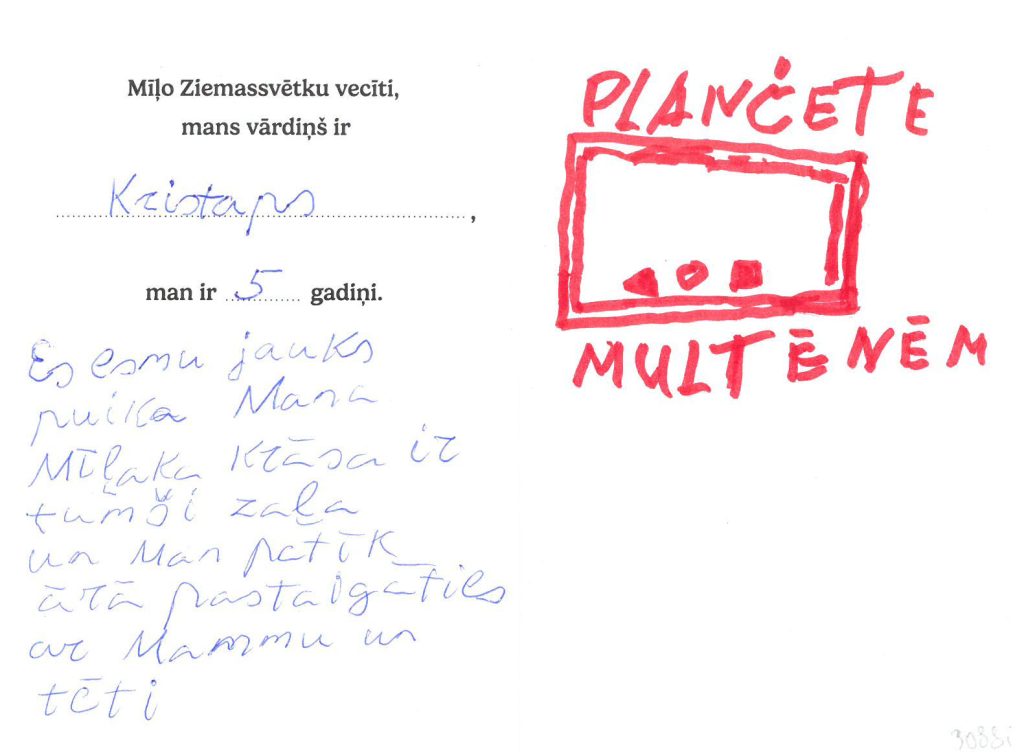 Mīļo Ziemassvētku vecīti,
mans vārdiņš ir
Kristaps,
man ir 5 gadiņi.
Es esmu jauks
puika Mana
Mīļaka krāsa ir
tumši zaļa
un Man patīk
ārā pastaigāties
ar Mammu un
tēti
PLANČETE
MULTĒNĒM